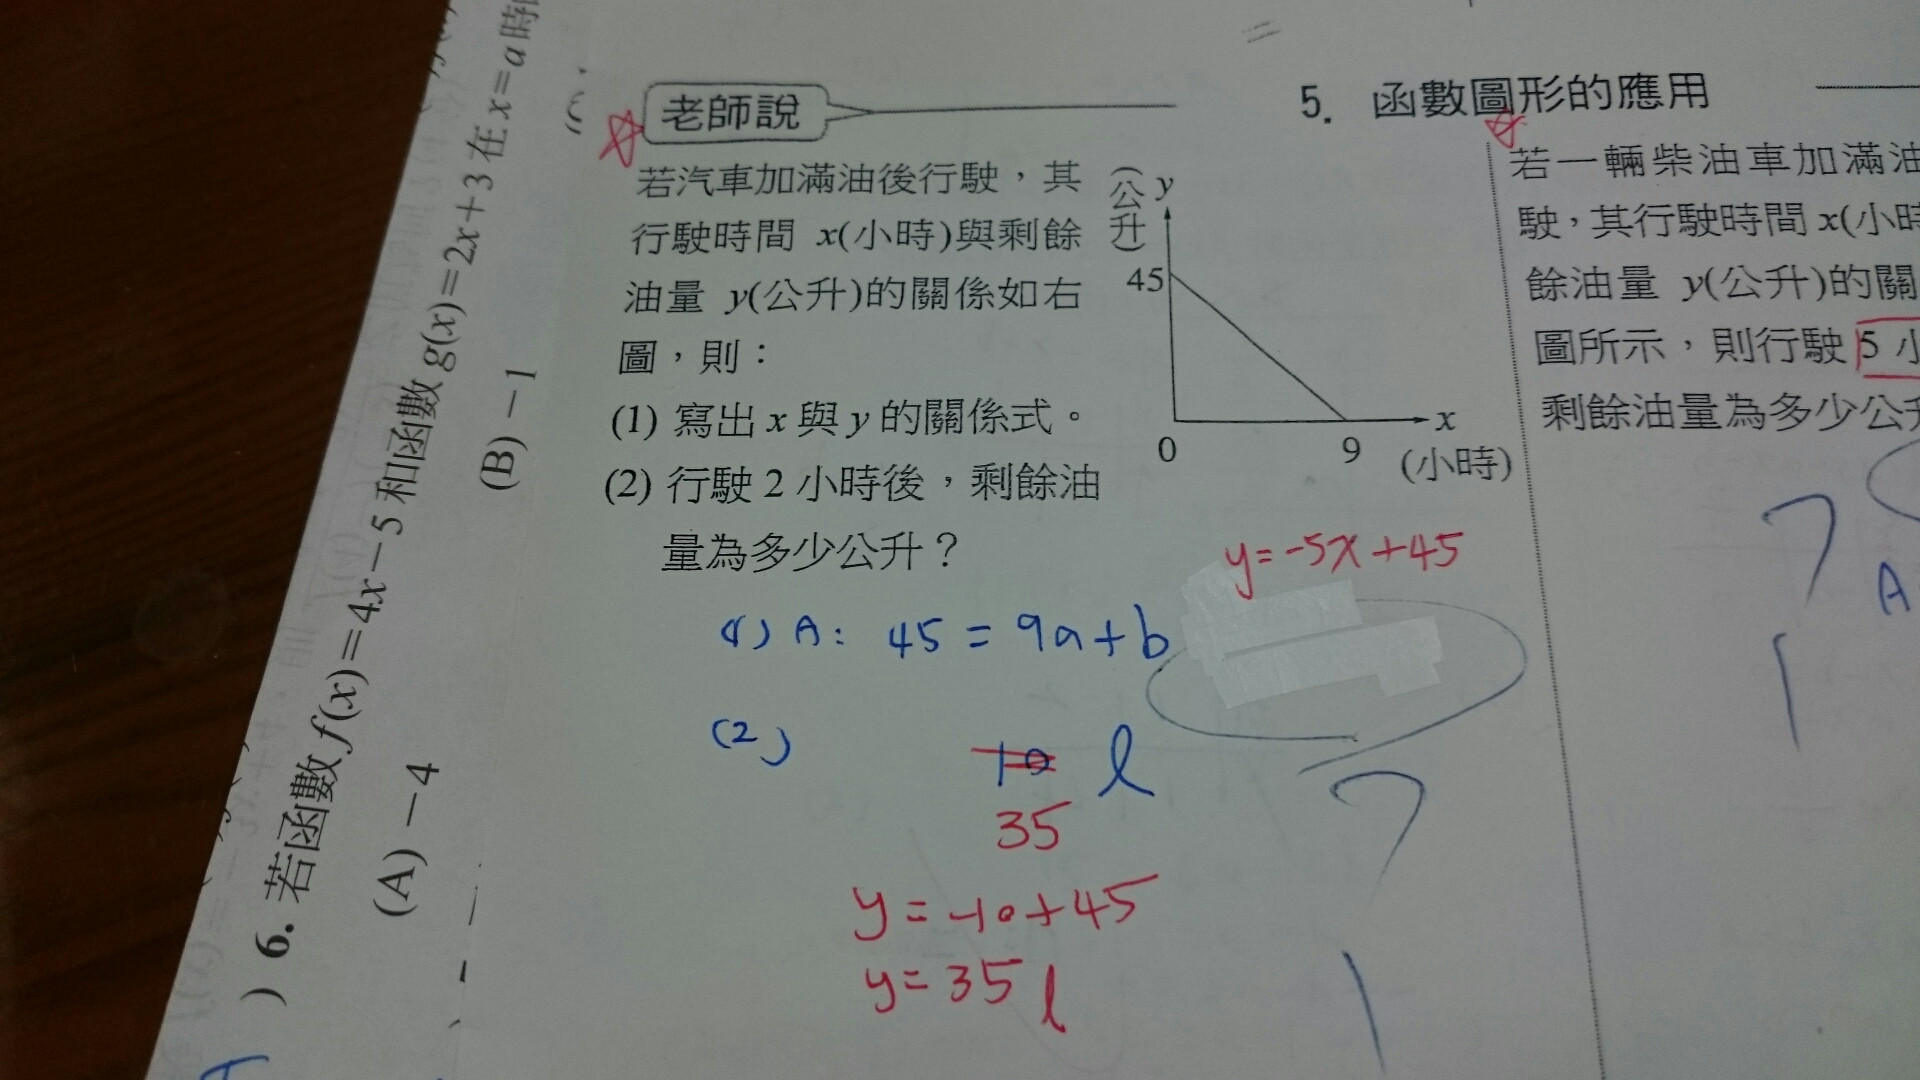 ) 6. 若函數 f(x)=4x−5 和函數 g(x)=2x+3 在 x=a 時
(A) −4
(B) −1
老師說
若汽車加滿油後行駛，其
行駛時間 x(小時)與剩餘
油量 y(公升)的關係如右
圖，則：
(1) 寫出 x 與 y 的關係式。
(2) 行駛 2 小時後，剩餘油
量為多少公升？
(公升)
y
45
0
9
x
(小時)
y=-5x+45
(1) A: 45=9a+b
(2) 10 l
35
y=-10+45
y=35 l
5. 函數圖形的應用
若一輛柴油車加滿油
駛，其行駛時間 x(小時
餘油量 y(公升)的關
圖所示，則行駛 5 小
剩餘油量為多少公升
A